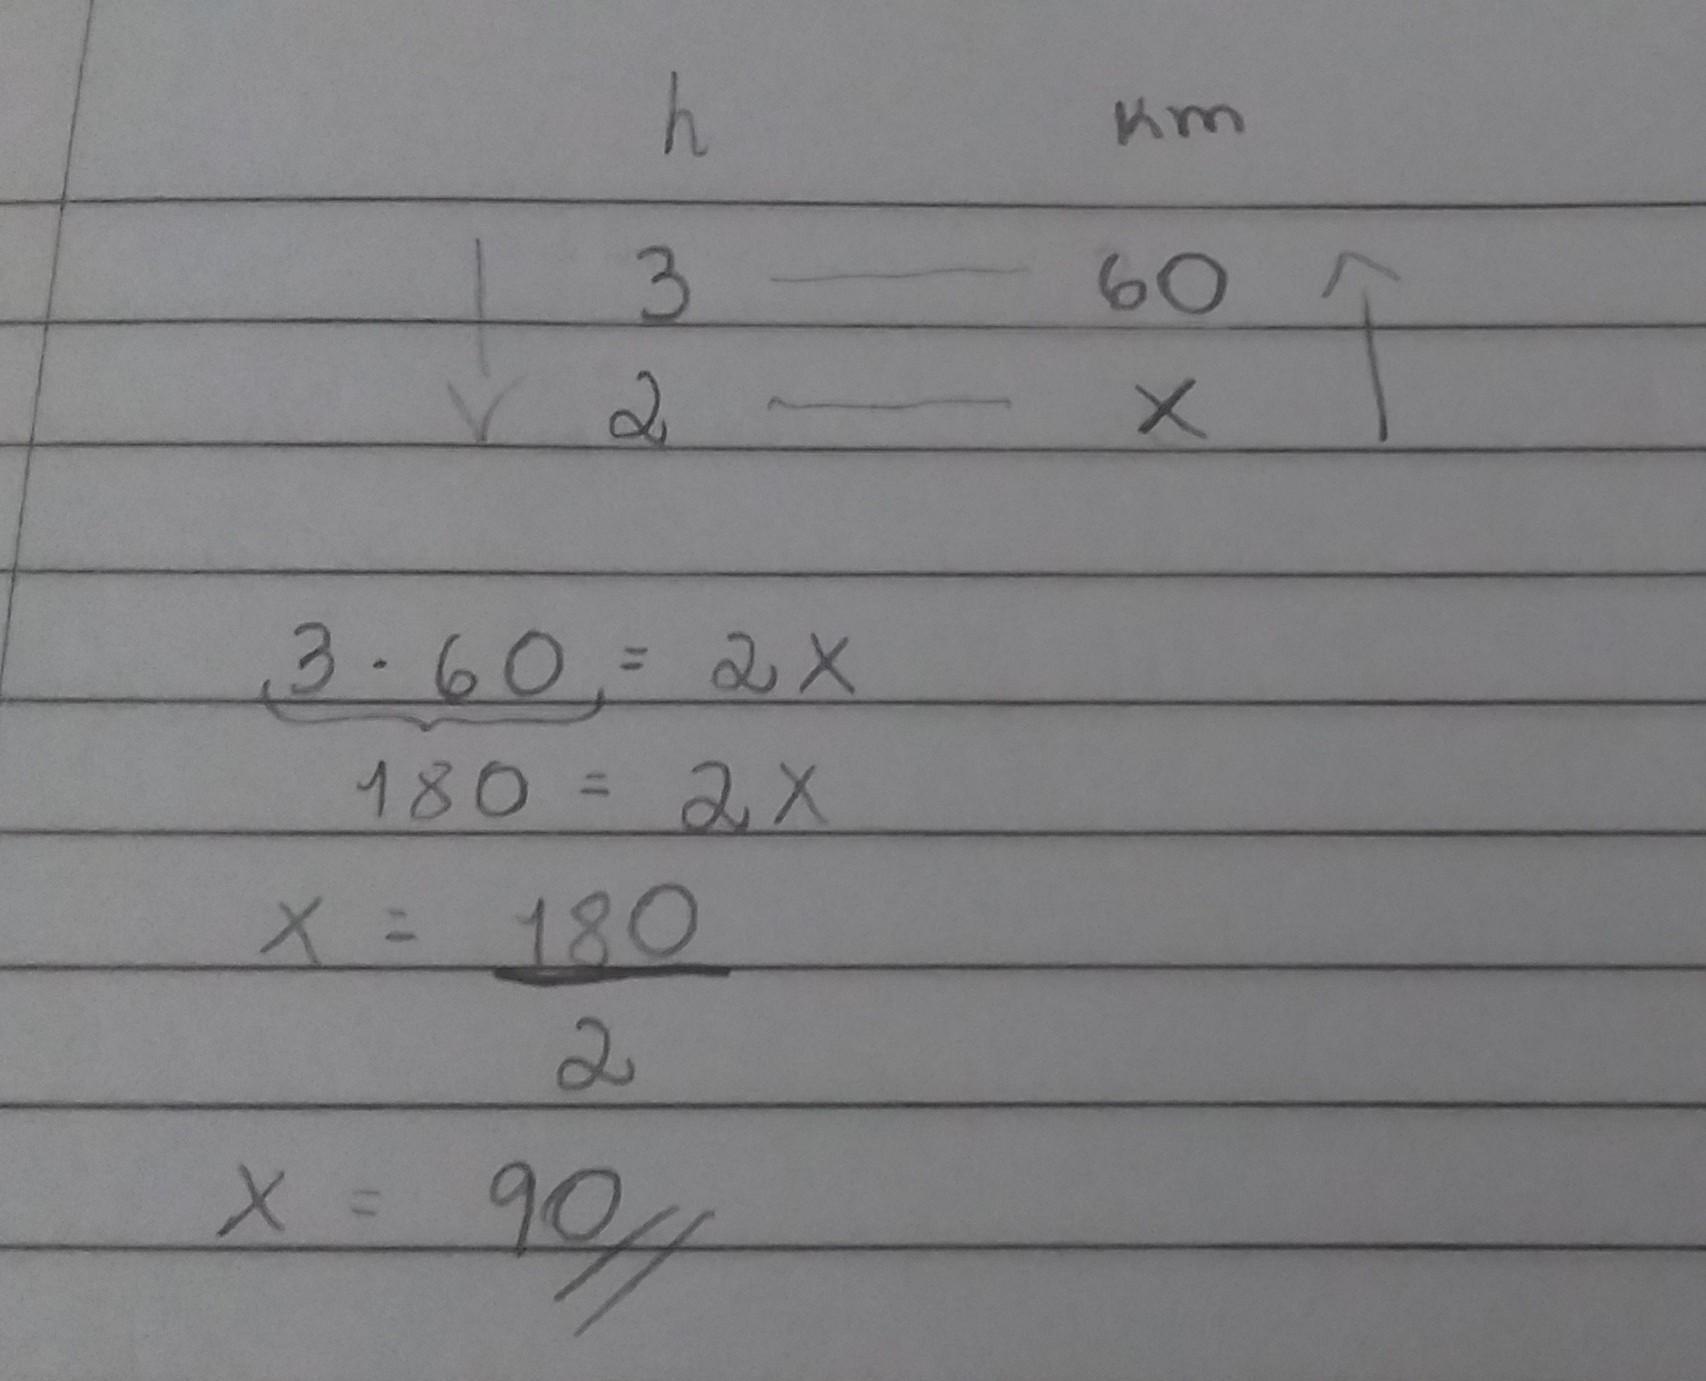 h km
↓ 3 — 60 ↑
2 — x
3 · 60 = 2x
180 = 2x
x = 180
2
x = 90//